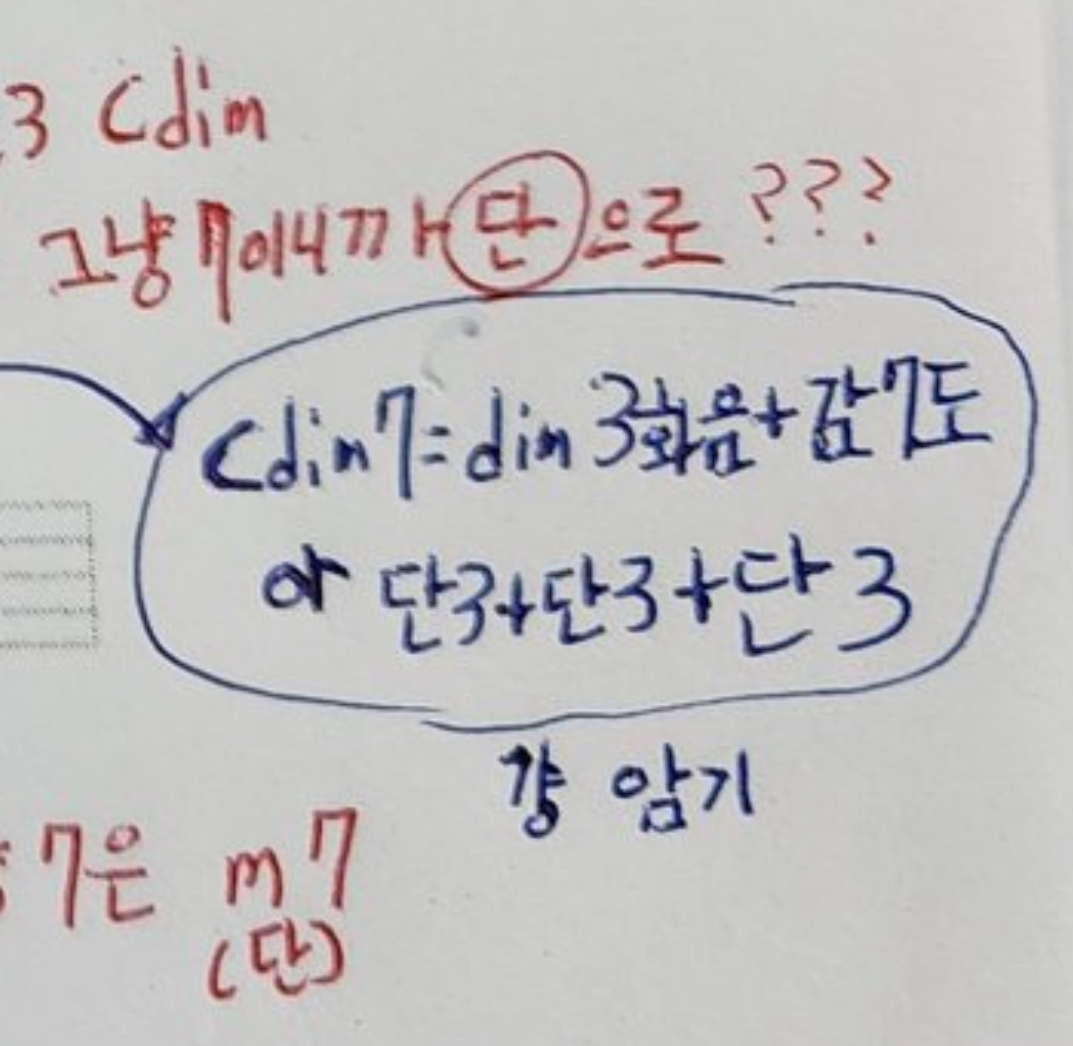 3 Cdim
그냥 7이니까 단으로 ???
Cdim7=dim 3화음+감7도
or 단3+단3+단3
걍 암기
7은 m7
(단)